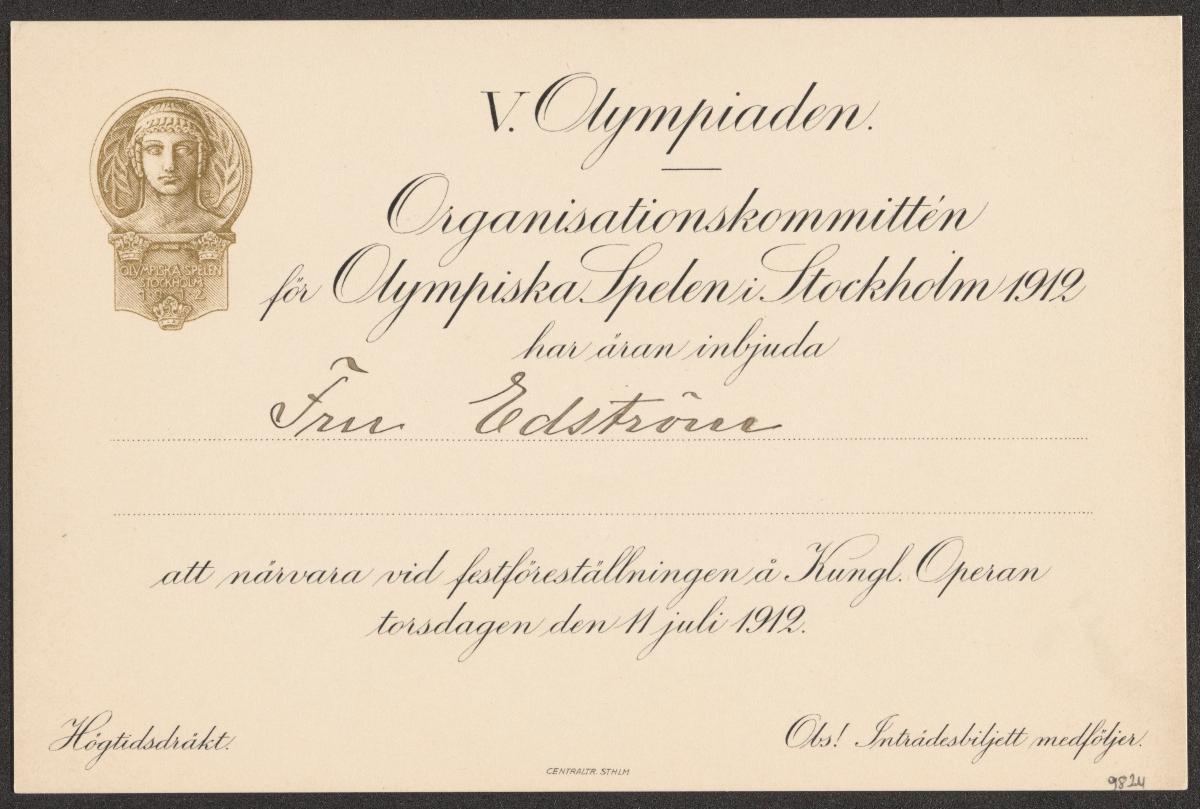 V. Olympiaden.
Organisationskommittén
för Olympiska Spelen i Stockholm 1912
har äran inbjuda
Fru Edström
att närvara vid festföreställningen å Kungl. Operan
torsdagen den 11 juli 1912.
Högtidsdräkt.
Obs! Inträdesbiljett medföljer.
OLYMPISKA SPELEN
STOCKHOLM
1912
CENTRALTR. STHLM
9824